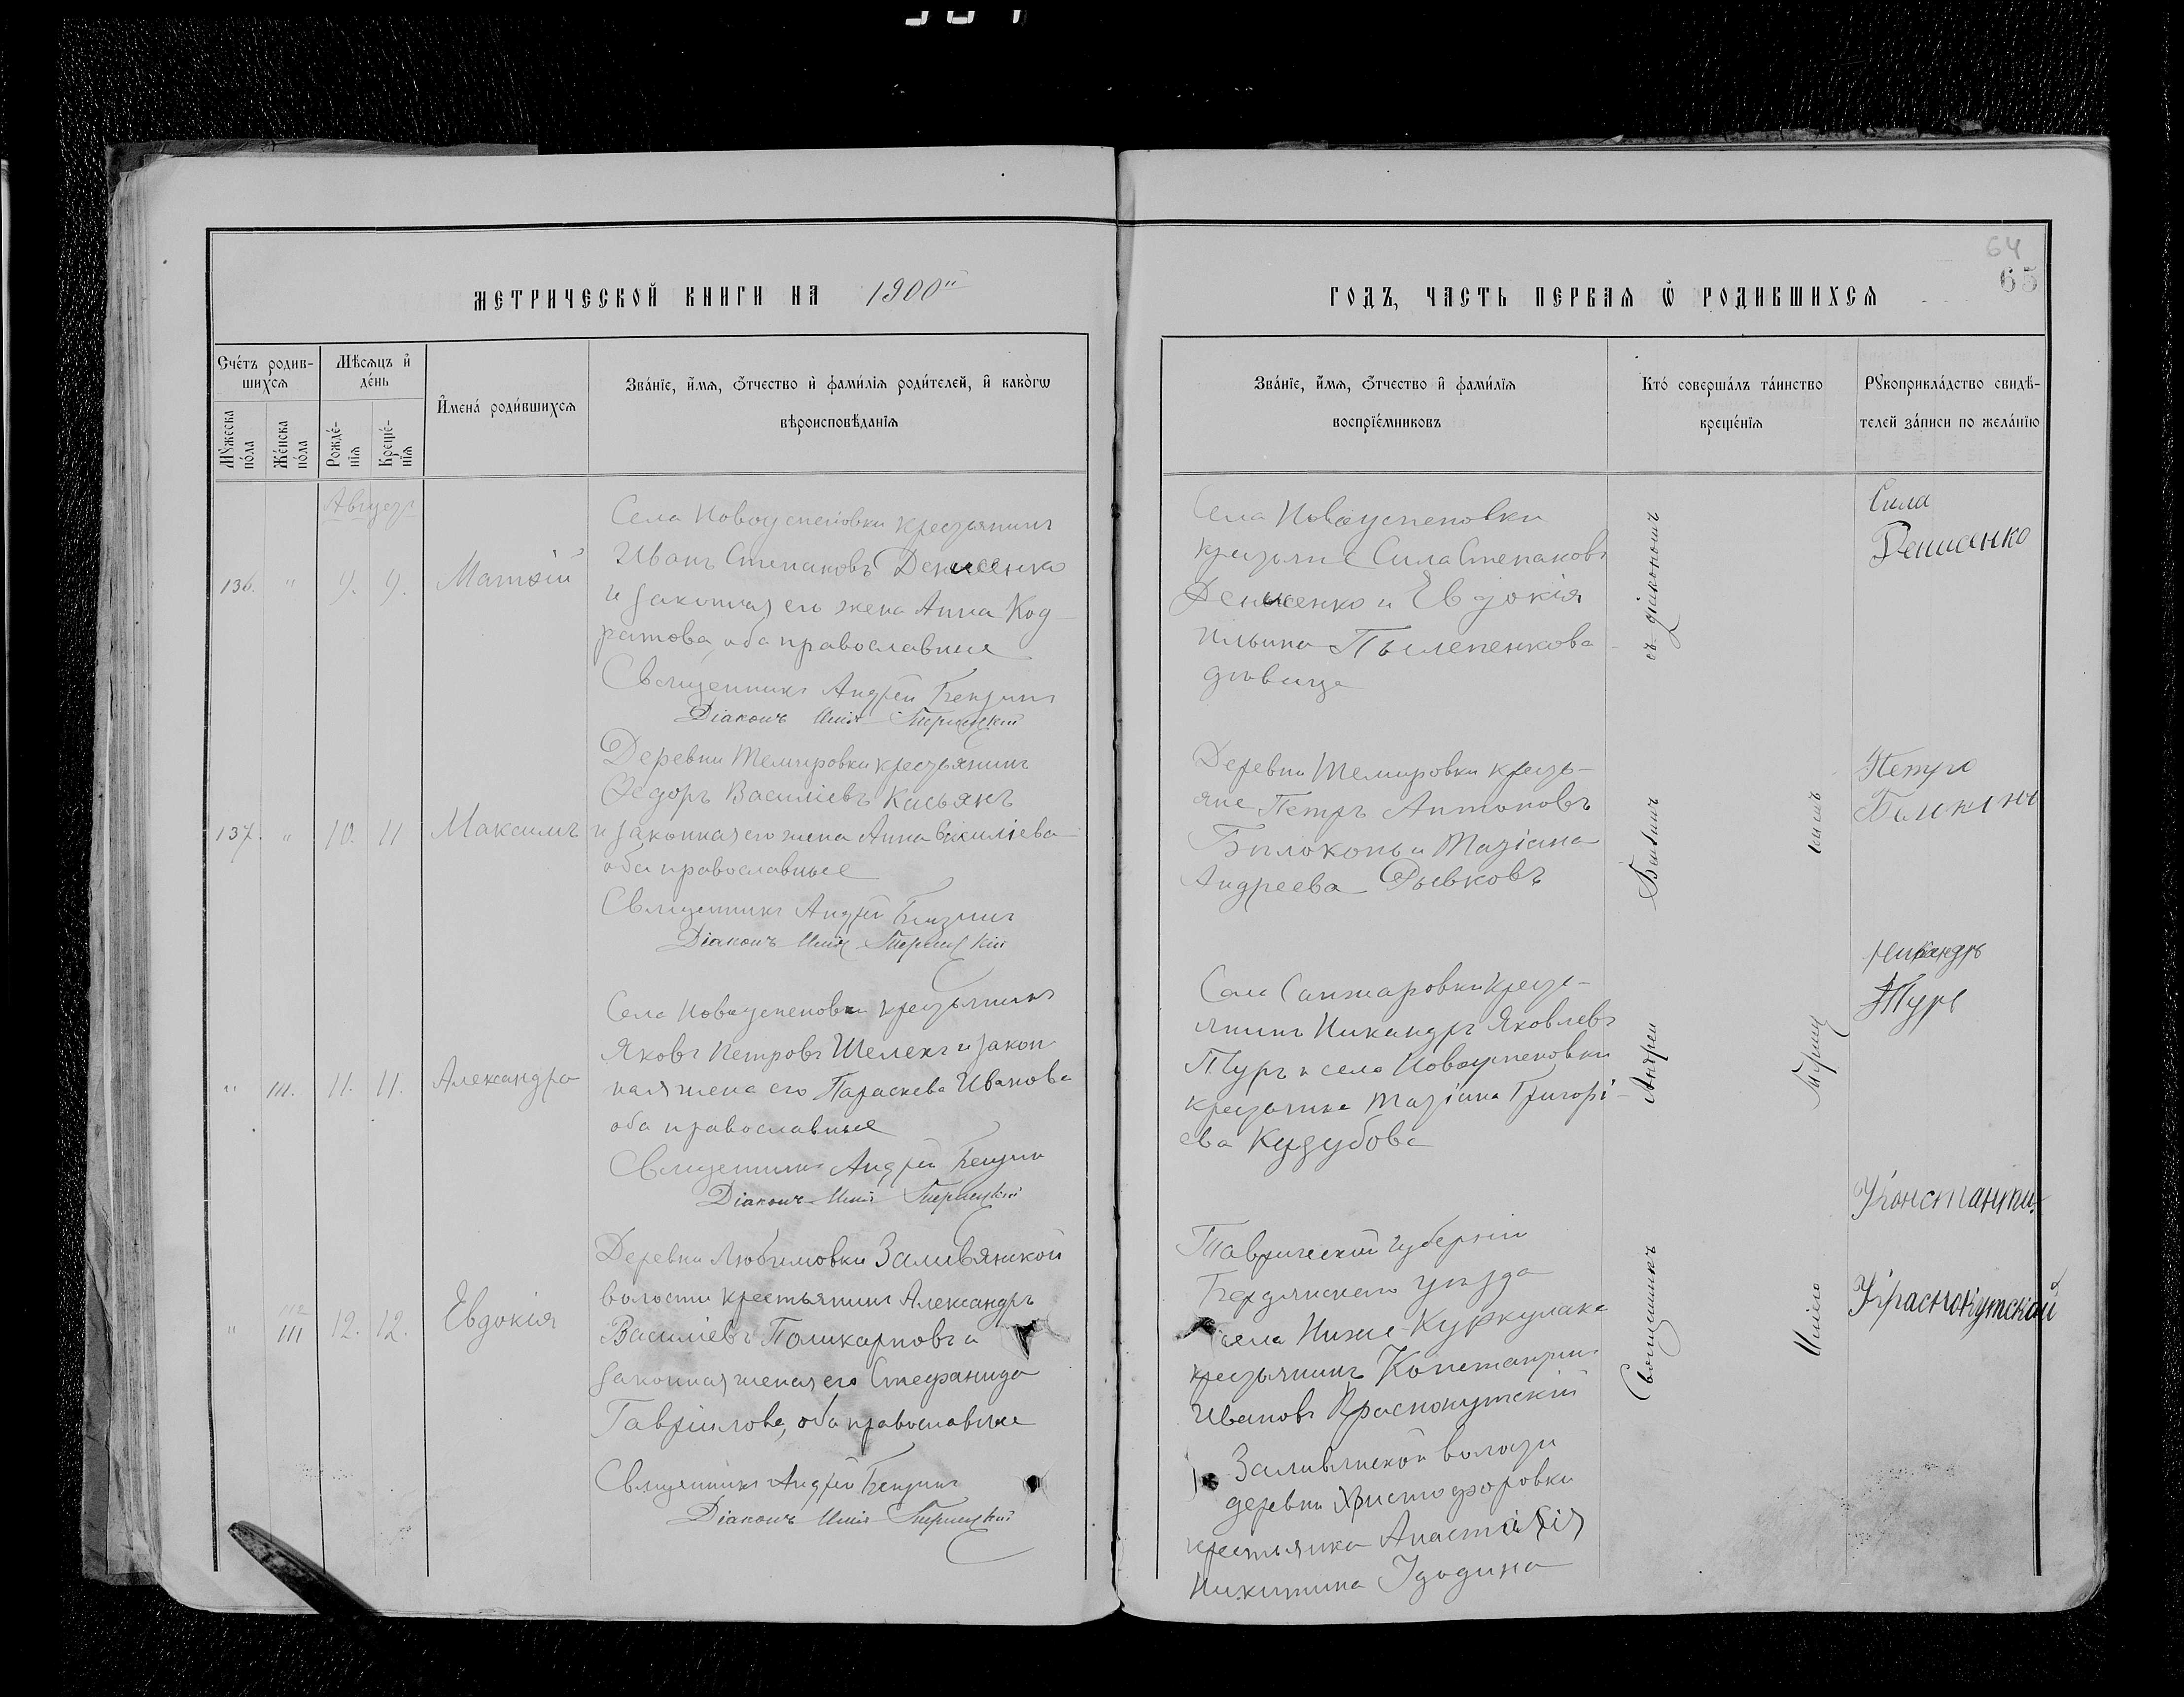 64
65
МЕТРИЧЕСКОЙ КНИГИ НА 1900й
ГОДЪ, ЧАСТЬ ПЕРВАЯ Ѿ РОДИВШИХСЯ
Счéтъ родив-
шихся
Мѣсяцъ и́
дéнь
Мꙋ́жеска
пóла
Жéнска
пóла
Рождé-
нїя
Крещé-
нїя
И́мена́ роди́вшихся
Зва́нїе, и́мя, ѻ́тчество и́ фами́лїя роди́телей, и́ како́гѡ
вѣроисповѣ́данїя
Зва́нїе, и́мя, ѻ́тчество и́ фами́лїя
воспрїе́мниковъ
Кто́ соверша́лъ та́инство
креще́нїя
Рꙋкоприкла́дство свидѣ́-
телей за́писи по жела́нїю
Августъ
136. " 9. 9. Матѳій
Села Новоуспеновки крестьянинъ
Иванъ Степановъ Денисенко
и законная его жена Анна Код-
ратова, оба православные
Священникъ Андрей
Діаконъ Илія
Села Новоуспеновки
крестьяне Сила Степановъ
Денисенко и Евдокія
Ильина Пылепенкова
дѣвица
Сила
Денисенко
137. " 10. 11 Максимъ
Деревни Темировки крестьянинъ
Ѳедоръ Василіевъ Касьянъ
и законная его жена Анна Василіева
оба православные
Священникъ Андрей
Діаконъ Илія
Деревни Темировки кресть-
яне Петръ Антоновъ
Билоконь и Татіана
Андреева Рывковъ
Петро
" 111. 11. 11. Александра
Села Новоуспеновки крестьянинъ
Яковъ Петровъ Шелехъ и закон
ная жена его Параскева Иванова
оба православные
Священникъ Андрей
Діаконъ Илія
Села Санжаровки кресть-
янинъ Никандръ Яковлевъ
Туръ и села Новоуспеновки
крестьянка Татіана Григорі-
ева Кудубова
Никандръ
Туръ
" 112 111 12. 12. Евдокія
Деревни Любимовки Заливянской
волости крестьянинъ Александръ
Василіевъ Поликарповъ и
законная жена его Стефанида
Гавріилова, оба православные
Священникъ Андрей
Діаконъ Илія
Таврической губерніи
Бердянскаго уѣзда
села Ниже-Куркулака
крестьянинъ Константинъ
Ивановъ Краснокутскій
Заливянской волости
деревни Христофоровки
крестьянка Анастасія
Никитина
Константин
Краснокутский
Священникъ Андрей съ діакономъ
Иліею